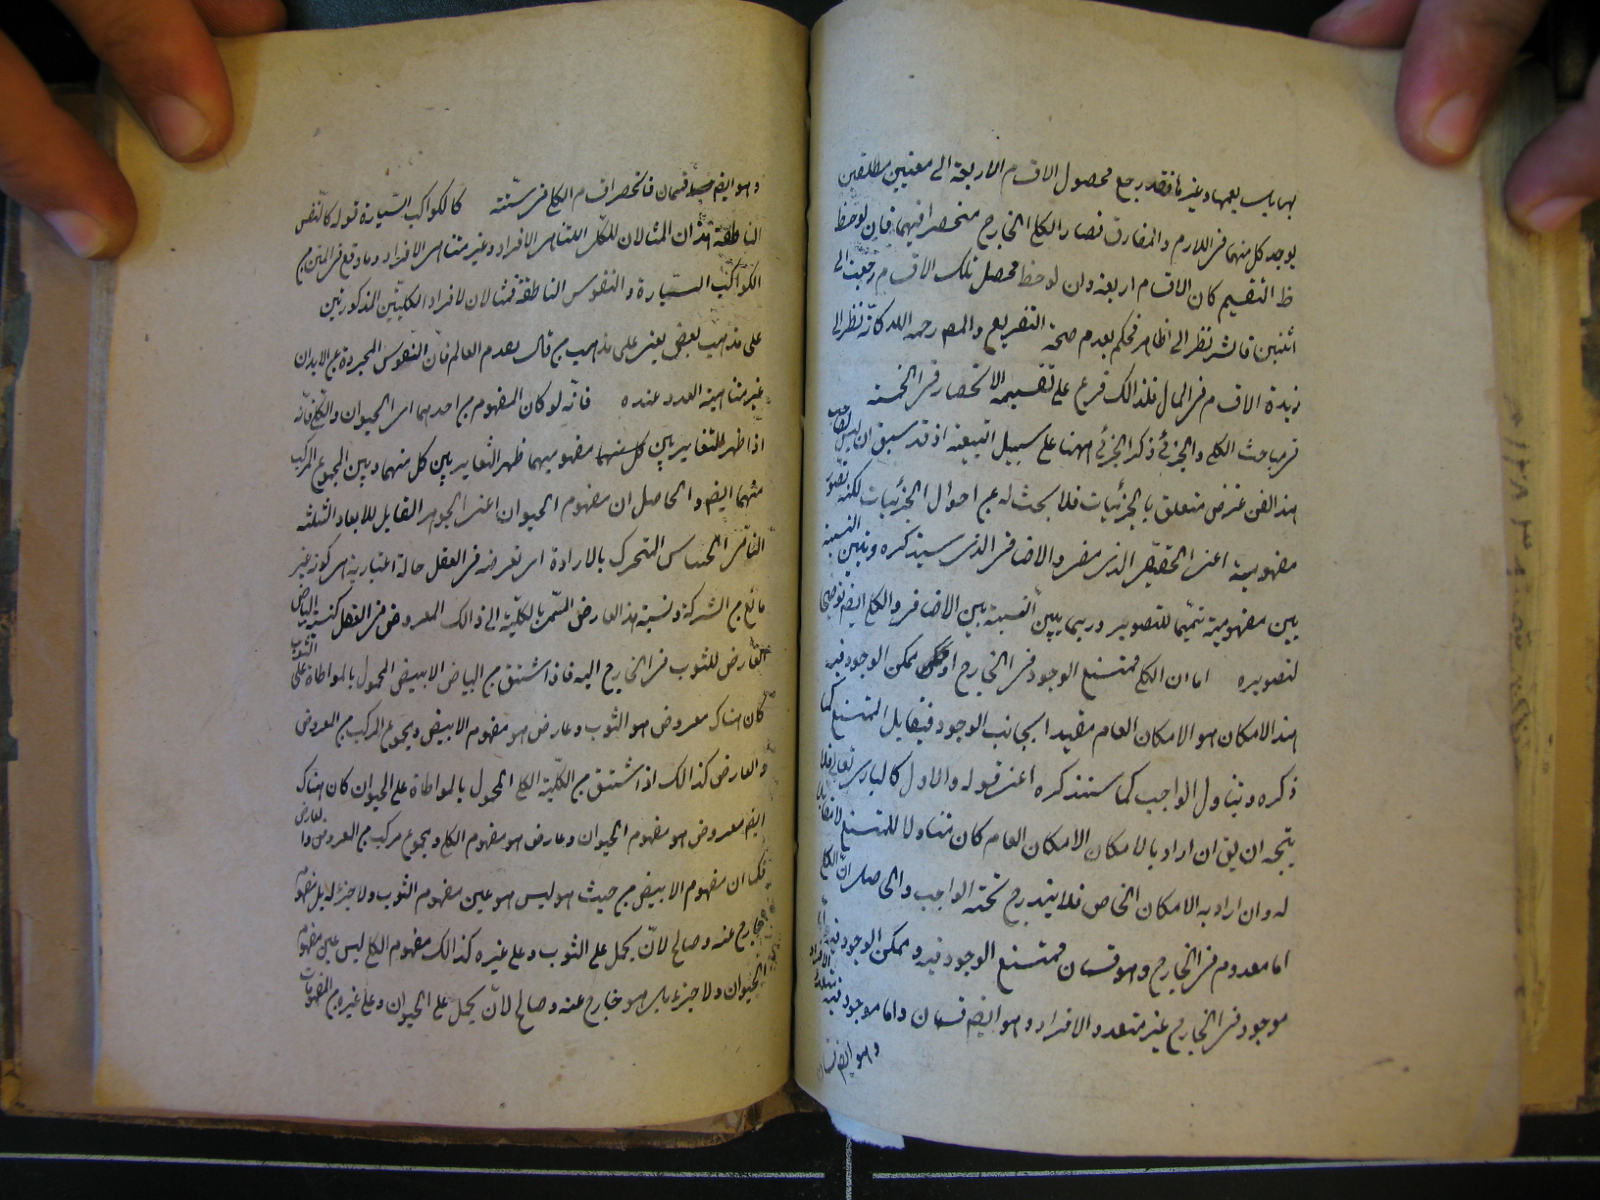 بهما يسب يعمها وغيرها فقد رجع محصول الاقسام الاربعة الى معنيين مطلقين
يوجد كل منهما فى اللازم والمفارق فصار الكلى الخارج منحصرا فيهما فان لوحظ
ظ التقسيم كان الاقسام اربعة وان لوحظ محصل تلك الاقسام رجعت الى
اثنين فالشر نظر الى الظاهر فحكم بعدم صحة التفريع والمص رحمه الله كانه نظر الى
زبدة الاقسام فى المال فلذالك فرع على تقسيمه الانحصار فى الخمسة
فى مباحث الكلى والجزئى ذكر الجزئى ههنا على سبيل التبعية اذ قد سبق ان ليس لصاحب
هذا الفن غرض متعلق بالجزئيات فلا بحث له عن احوال الجزئيات لكنه تصور
مفهوميه اعنى الحقيقى الذى مضى والاضافى الذى سيذكره وتبين النسبة
بين مفهوميه تتميما للتصوير وربما يبين النسبة بين الاضافى والكلى ايضا توضيحا
لتصويره اما ان الكلى ممتنع الوجود فى الخارج او ممكن الوجود فيه
هذا الامكان هو الامكان العام مقيدا بجانب الوجود فيقابل الممتنع كما
ذكره ويتناول الواجب كما سنذكره اعنى قوله والاول كالبارى تعالى فلا
يتجه ان يق ان اراد بالامكان الامكان العام كان متناولا للممتنع لا مقابلا
له وان اراد به الامكان الخاص فلا يندرج تحته الواجب والحاصل ان الكلى
اما معدوم فى الخارج وهو قسمان ممتنع الوجود فيه وممكن الوجود فيه
موجود فى الخارج غير متعدد الافراد وهو ايضا قسمان واما موجود فيه متعدد الافراد
وهو ايضا قسمان
وهو ايضا قسمان فانحصر اقسام الكلى فى ستته كالكواكب السيارة قوله كالنفس
الناطقة هذان المثالان للكلى المتناهى الافراد وغير متناهى الافراد وما وقع فى المتن من
الكواكب السيارة والنفوس الناطقة فمثالان لافراد الكليين المذكورين
على مذهب بعض يعنى على مذهب من قال بقدم العالم فان النفوس المجردة عن الابدان
غير متناهية العدد عنده فانه لو كان المفهوم من احدهما اى الحيوان والكلى فانه
اذا ظهر التغاير بين مفهوميهما ظهر التغاير بين كل منهما وبين المجموع المركب
منهما ايضا والحاصل ان مفهوم الحيوان اعنى الجوهر القابل للابعاد الثلثة
النامى الحساس المتحرك بالارادة امر تعرضه فى العقل حالة اعتبارية هى كونه غير
مانع من الشركة ونسبة هذا العارض المسمى بالكلية الى ذالك المعروض فى العقل كنسبة البياض
العارض للثوب فى الخارج اليه فاذا اشتق من البياض الابيض المحمول بالمواطاة على الثوب
كان هناك معروض هو الثوب وعارض هو مفهوم الابيض ومجموع المركب من المعروض
والعارض كذالك اذا اشتق من الكلية الكلى المحمول بالمواطاة على الحيوان كان هناك
ايضا معروض هو مفهوم الحيوان وعارض هو مفهوم الكلى ومجموع مركب من المعروض والعارض
فكما ان مفهوم الابيض من حيث هو ليس هو عين مفهوم الثوب ولا جزء له بل مفهوم
خارج عنه وصالح لان يحمل على الثوب وعلى غيره كذالك مفهوم الكلى ليس عين مفهوم
الحيوان ولا جزءه بل هو خارج عنه وصالح لان يحمل على الحيوان وعلى غيره من المفهومات